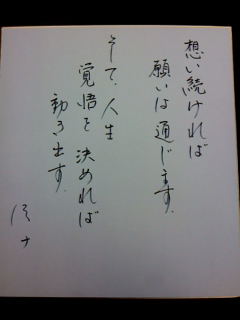 想い続ければ
願いは通じます。
そして、人生
覚悟を決めれば
動き出す。